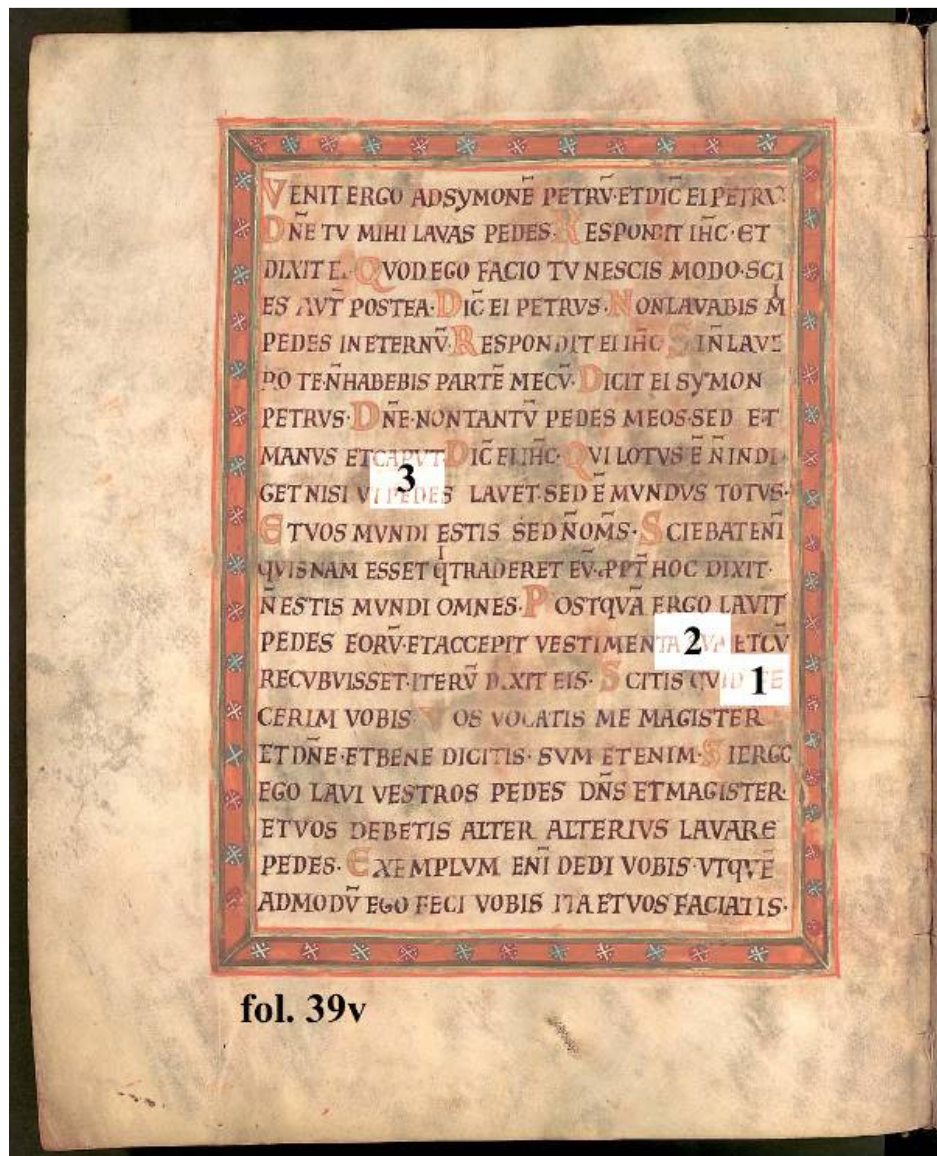 VENIT ERGO AD SYMONĒ PETRV̄·ET DIC̄ EI PETRV·
DN̄E TV MIHI LAVAS PEDES·RESPONDIT IHC̄·ET
DIXIT EI·QVOD EGO FACIO TV NESCIS MODO·SCI
ES AVT̄ POSTEA·DIC̄ EI PETRVS·NON LAVABIS M
PEDES IN ETERNV̄·RESPONDIT EI IHC̄·SI N̄ LAVE
RO TE·N̄ HABEBIS PARTĒ MECV̄·DICIT EI SYMON
PETRVS·DN̄E·NON TANTV̄ PEDES MEOS·SED ET
MANVS ET CAPVT·DIC̄ EI IHC̄·QVI LOTVS Ē N̄ INDI
3
GET NISI VT PEDES LAVET·SED Ē MVNDVS TOTVS·
ET VOS MVNDI ESTIS SED N̄ OM̄S·SCIEBAT ENĪ
QVISNAM ESSET Q TRADERET EV̄·PPT̄ HOC DIXIT·
N̄ ESTIS MVNDI OMNES·POSTQVĀ ERGO LAVIT
PEDES EORV̄·ET ACCEPIT VESTIMENTA ET CV̄
2
RECVBVISSET·ITERV̄ DIXIT EIS·SCITIS QVID FE
1
CERIM VOBIS·VOS VOCATIS ME MAGISTER
ET DN̄E·ET BENE DICITIS·SVM ETENIM·SI ERGO
EGO LAVI VESTROS PEDES DN̄S ET MAGISTER·
ET VOS DEBETIS ALTER ALTERIVS LAVARE
PEDES·EXEMPLVM ENĪ DEDI VOBIS·VT QVĒ
ADMODV̄ EGO FECI VOBIS ITA ET VOS FACIATIS·
fol. 39v